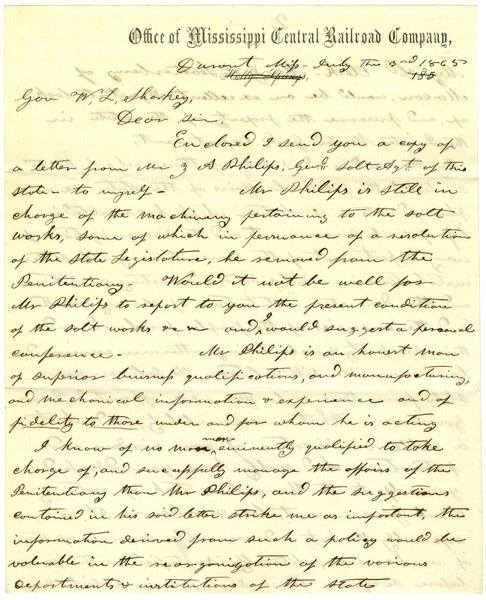 Office of Mississippi Central Railroad Company,
Durant, Miss. July the 3rd 1865
Holly Springs, 185
Gov W. L. Sharkey,
Dear Sir,
Enclosed I send you a copy of
a letter from Mr Z A Philips, Genl Salt Agt. of this
state - to myself - Mr Philips is still in
charge of the machinery pertaining to the salt
works, some of which in persuance of a resolution
of the State Legislature, he removed from the
Penitentiary - Would it not be well for
Mr Philips to report to you the present condition
of the salt works &c and I would suggest a personal
conference - Mr Philips is an honest man
of superior business qualifications, and manufacturing,
and mechanical information & experience and of
fidelity to those under and for whom he is acting
I know of no man more eminently qualified to take
charge of, and successfully manage the affairs of the
Penitentiary than Mr Philips, and the suggestions
contained in his said letter strike me as important, the
information derived from such a policy would be
valuable in the reorganization of the various
departments & institutions of the State